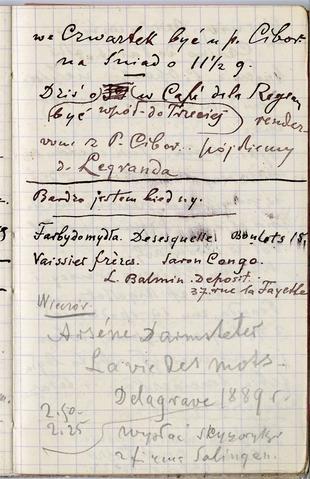 we Czwartek być u p. Cibor.
na śniad o 11½ g.
Dziś o w Café de la Regen
być wpół-do Trzeciej rendez
vous z P. Cibor... pójdziemy
do Legranda
Bardzo jestem biedny.
Farby do mydła. Desesquelle. Boulets 18,
Vaissier frères. Savon Congo.
L. Balmin. Deposit.
37. rue la Fayette
Wieczór.
Arsène Darmsteter
La vie des mots.
Delagrave 1889 r.
2.50.
2.25 wysłać skrzynkę
z firmą Salingen.